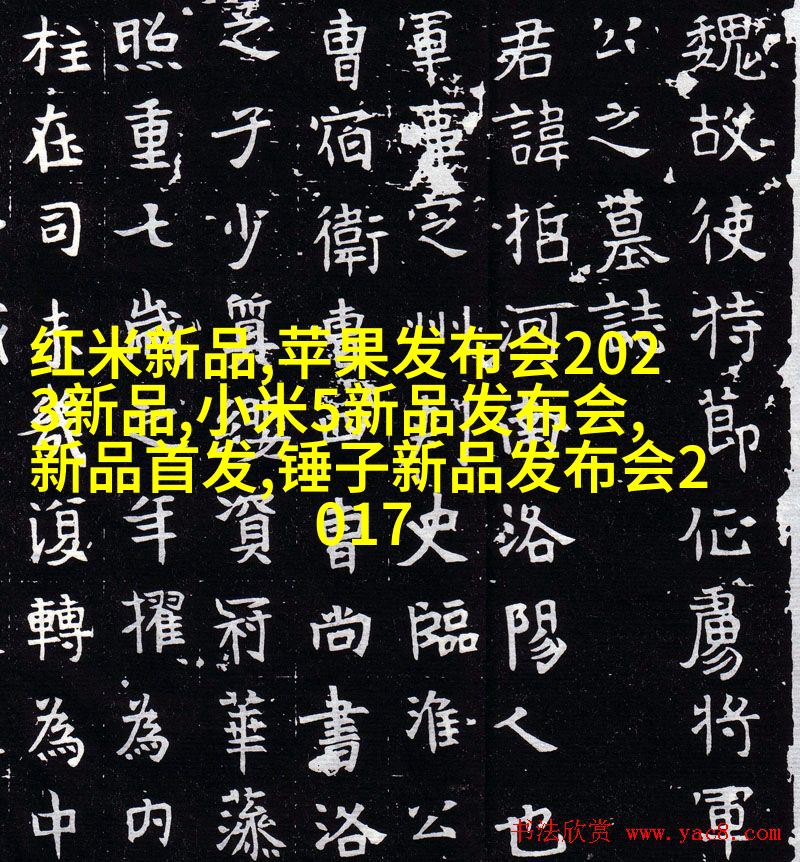 红米新品,苹果发布会202
3新品,小米5新品发布会,
新品首发,锤子新品发布会2
017
魏故使持節征虜將軍
公之墓誌
君諱括河南洛陽人也
軍事定州刺史臨淮公
曹宿衛曹尚書洛
之子少質資冠華藻
照重七歲之年擢為内
柱在司未幾復轉為中
书法欣赏 www.yac8.com